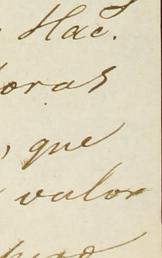 Hac.
oras
, que
valor